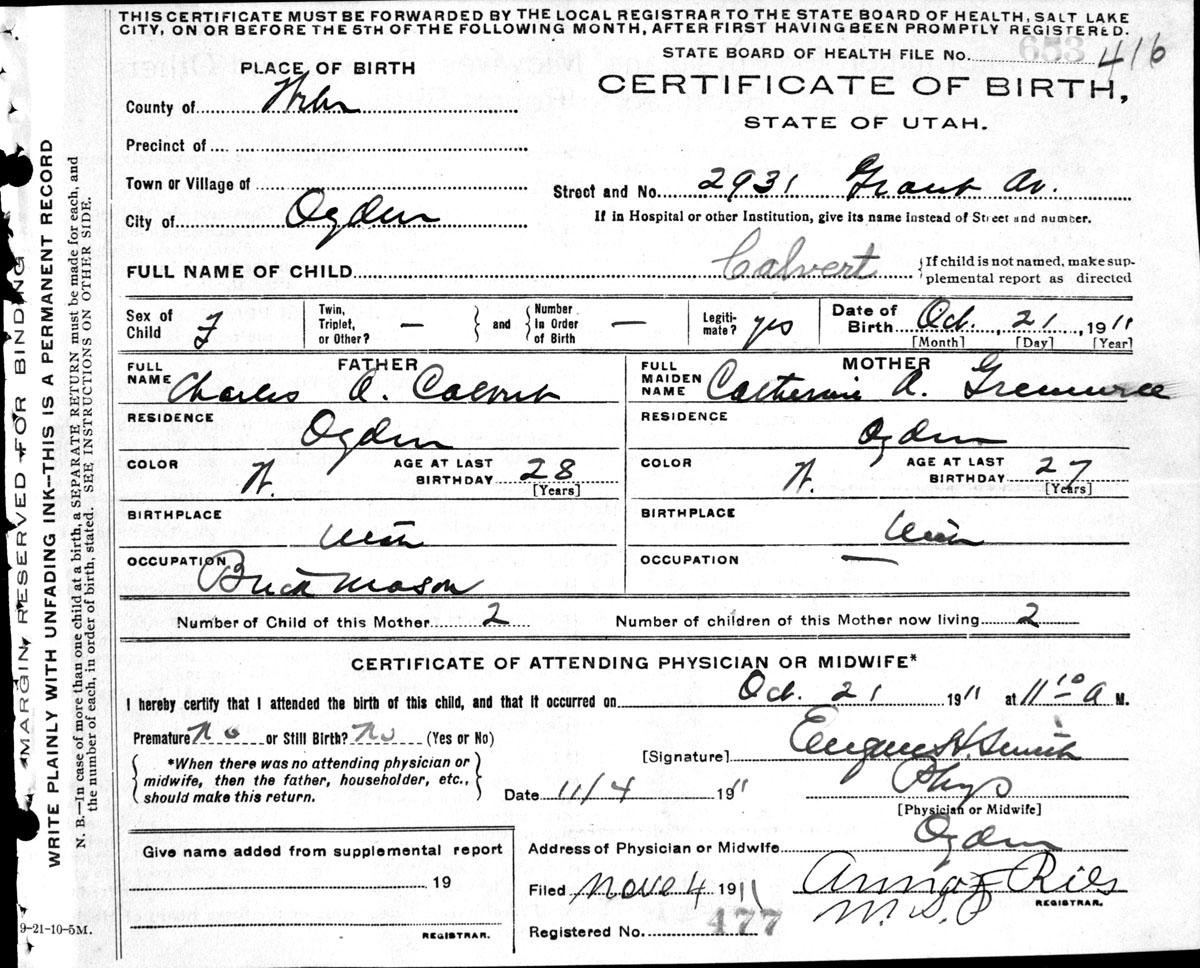 THIS CERTIFICATE MUST BE FORWARDED BY THE LOCAL REGISTRAR TO THE STATE BOARD OF HEALTH, SALT LAKE
CITY, ON OR BEFORE THE 5TH OF THE FOLLOWING MONTH, AFTER FIRST HAVING BEEN PROMPTLY REGISTERED.
STATE BOARD OF HEALTH FILE No. 653 416
PLACE OF BIRTH
CERTIFICATE OF BIRTH,
STATE OF UTAH.
County of
Precinct of
Town or Village of
Street and No. 2931 Grant Av.
City of Ogden
If in Hospital or other Institution, give its name instead of Street and number.
FULL NAME OF CHILD Calvert {If child is not named, make sup-
plemental report as directed
Sex of Child F
Twin, Triplet, or Other? —
} and {
Number in Order of Birth —
Legiti-mate? yes
Date of Birth Oct. 21, 1911
[Month] [Day] [Year]
FATHER
FULL NAME Charles A. Calvert
MOTHER
FULL MAIDEN NAME Catherine A.
RESIDENCE Ogden
RESIDENCE Ogden
COLOR W. AGE AT LAST BIRTHDAY 28 [Years]
COLOR W. AGE AT LAST BIRTHDAY 27 [Years]
BIRTHPLACE
BIRTHPLACE
OCCUPATION Brick mason
OCCUPATION —
Number of Child of this Mother 2
Number of children of this Mother now living 2
CERTIFICATE OF ATTENDING PHYSICIAN OR MIDWIFE*
I hereby certify that I attended the birth of this child, and that it occurred on Oct. 21 1911 at 11 10 A M.
Premature No or Still Birth? No (Yes or No)
{ *When there was no attending physician or
midwife, then the father, householder, etc.,
should make this return. }
[Signature] Eugene H. Smith
Date 11/4 1911
Phys
[Physician or Midwife]
Address of Physician or Midwife Ogden
Give name added from supplemental report
19
REGISTRAR.
Filed Nove 4 1911
REGISTRAR.
Registered No. 477
9-21-10-5M.
MARGIN RESERVED FOR BINDING
WRITE PLAINLY WITH UNFADING INK--THIS IS A PERMANENT RECORD
N. B.—In case of more than one child at a birth, a SEPARATE RETURN must be made for each, and
the number of each, in order of birth, stated. SEE INSTRUCTIONS ON OTHER SIDE.